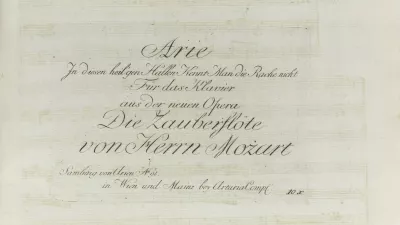 Arie
In diesen heil'gen Hallen Kennt Man die Rache nicht
Für das Klavier
aus der neuen Opera
Die Zauberflöte
von Herrn Mozart
Samlung von Arien No
in Wien und Mainz bei Artaria Comp. 10 x